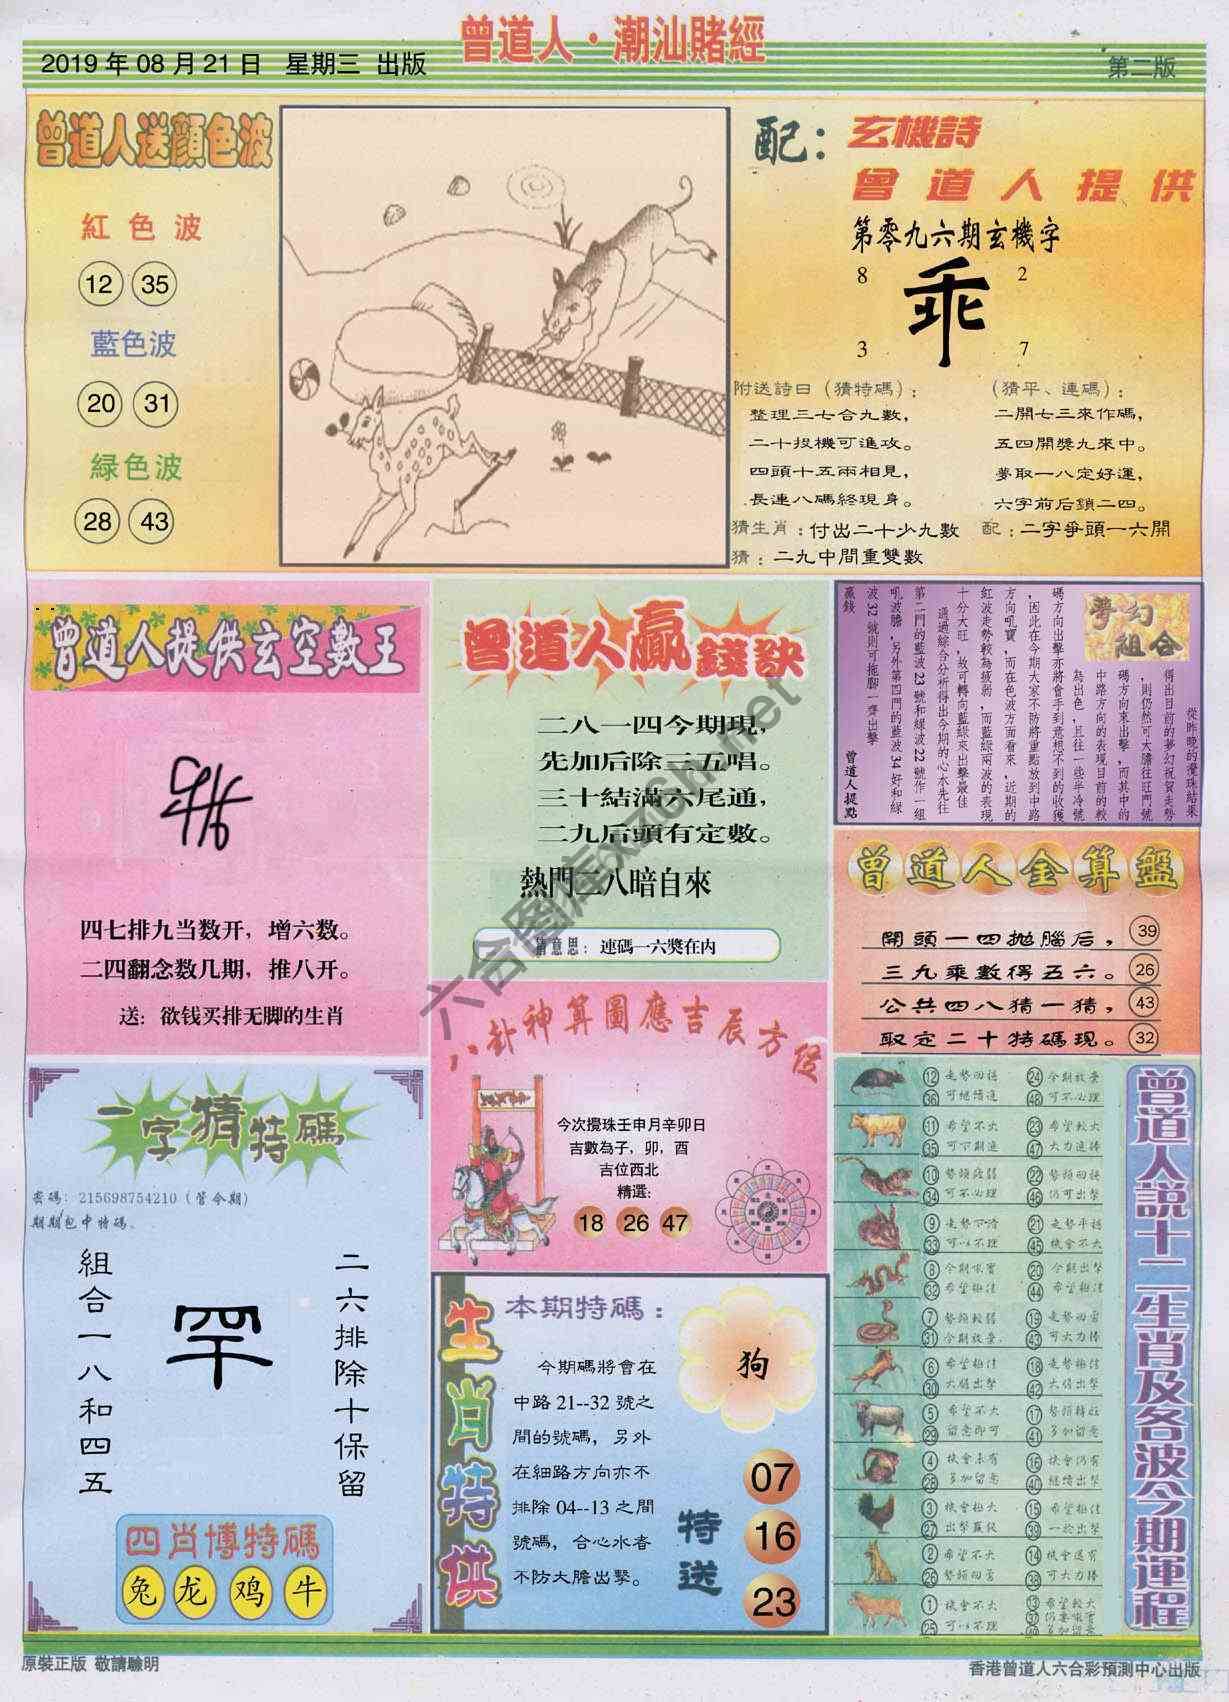 曾道人·潮汕賭經
2019年08月21日 星期三 出版
第二版
曾道人送顔色波
紅色波
12 35
藍色波
20 31
緑色波
28 43
配：
玄機詩
曾道人提供
第零九六期玄機字
8 2
乖
3 7
附送詩曰（猜特碼）：
整理三七合九數，
二十投機可進攻。
四頭十五兩相見，
長連八碼終現身。
（猜平、連碼）：
二開七三來作碼，
五四開獎九來中。
夢取一八定好運，
六字前后鎖二四。
猜生肖：付出二十少九數
配：二字爭頭一六開
猜：二九中間重雙數
曾道人提供玄空數王
四七排九当数开，增六数。
二四翻念数几期，推八开。
送：欲钱买排无脚的生肖
曾道人贏錢訣
二八一四今期現，
先加后除三五唱。
三十結滿六尾通，
二九后頭有定數。
熱門三八暗自來
猜意思：連碼一六獎在內
夢幻組合
從昨晚的攪珠結果
得出目前的夢幻祝賀走勢
，則仍然可大膽往旺門號
碼方向來出擊，而其中的
中路方向的表現目前的較
為出色，且往一些半冷號
碼方向出擊亦將會手到意想不到的收獲
，因此在今期大家不防將重點放到中路
方向吼寶，而在色波方面看來，近期的
紅波走勢較為疲弱，而藍緑兩波的表現
十分大旺，故可轉向藍緑來出擊最佳
通過綜合分析得出今期的心水先往
第二門的藍波23號和緑波22號作一組
吼波膽，另外第四門的藍波34好和緑
波32號則可拖腳一齊出擊
贏錢
曾道人提點
曾道人金算盤
開頭一四拋腦后， 39
三九乘數得五六。 26
公共四八猜一猜， 43
取定二十特碼現。 32
八卦神算圖應吉辰方位
今次攪珠壬申月辛卯日
吉數為子，卯，酉
吉位西北
精選：
18 26 47
一字猜特碼
密碼：215698754210（管令期）
期期包中特碼。
組合一八和四五
罕
二六排除十保留
四肖博特碼
兔 龙 鸡 牛
生肖特供
本期特碼：
今期碼將會在
中路21--32號之
間的號碼，另外
在細路方向亦不
排除04--13之間
號碼，合心水者
不防大膽出擊。
狗
特送
07
16
23
曾道人説十二生肖及各波今期運程
12 走勢回穩 24 今期放棄
36 可繼續追 48 可不必理
11 希望不大 23 希望較大
35 可下期追 47 大力追捧
10 勢頭疲弱 22 勢頭回穩
34 可不必理 46 仍可出擊
9 走勢下滑 21 走勢平穩
33 可以不理 45 機會不大
8 今期吼寶 20 今期出擊
32 希望極佳 44 希望極佳
7 勢頭較弱 19 走勢回勇
31 今期放棄 43 可大力捧
6 希望極佳 18 走勢極佳
30 大膽出擊 42 大膽出擊
5 希望不大 17 勢頭轉旺
29 留意即可 41 多加留意
4 機會未有 16 機會仍有
28 多加留意 40 繼續出擊
3 機會極大 15 希望極佳
27 出擊羅伏 39 一於出擊
2 希望不大 14 機會還有
26 勢頭回落 38 可大力捧
1 機會不大 13 希望較大
25 可以不理 37 仍要吼實
49 多加留意
六合圖庫 6xz6h.net
原裝正版 敬請驗明
香港曾道人六合彩預測中心出版